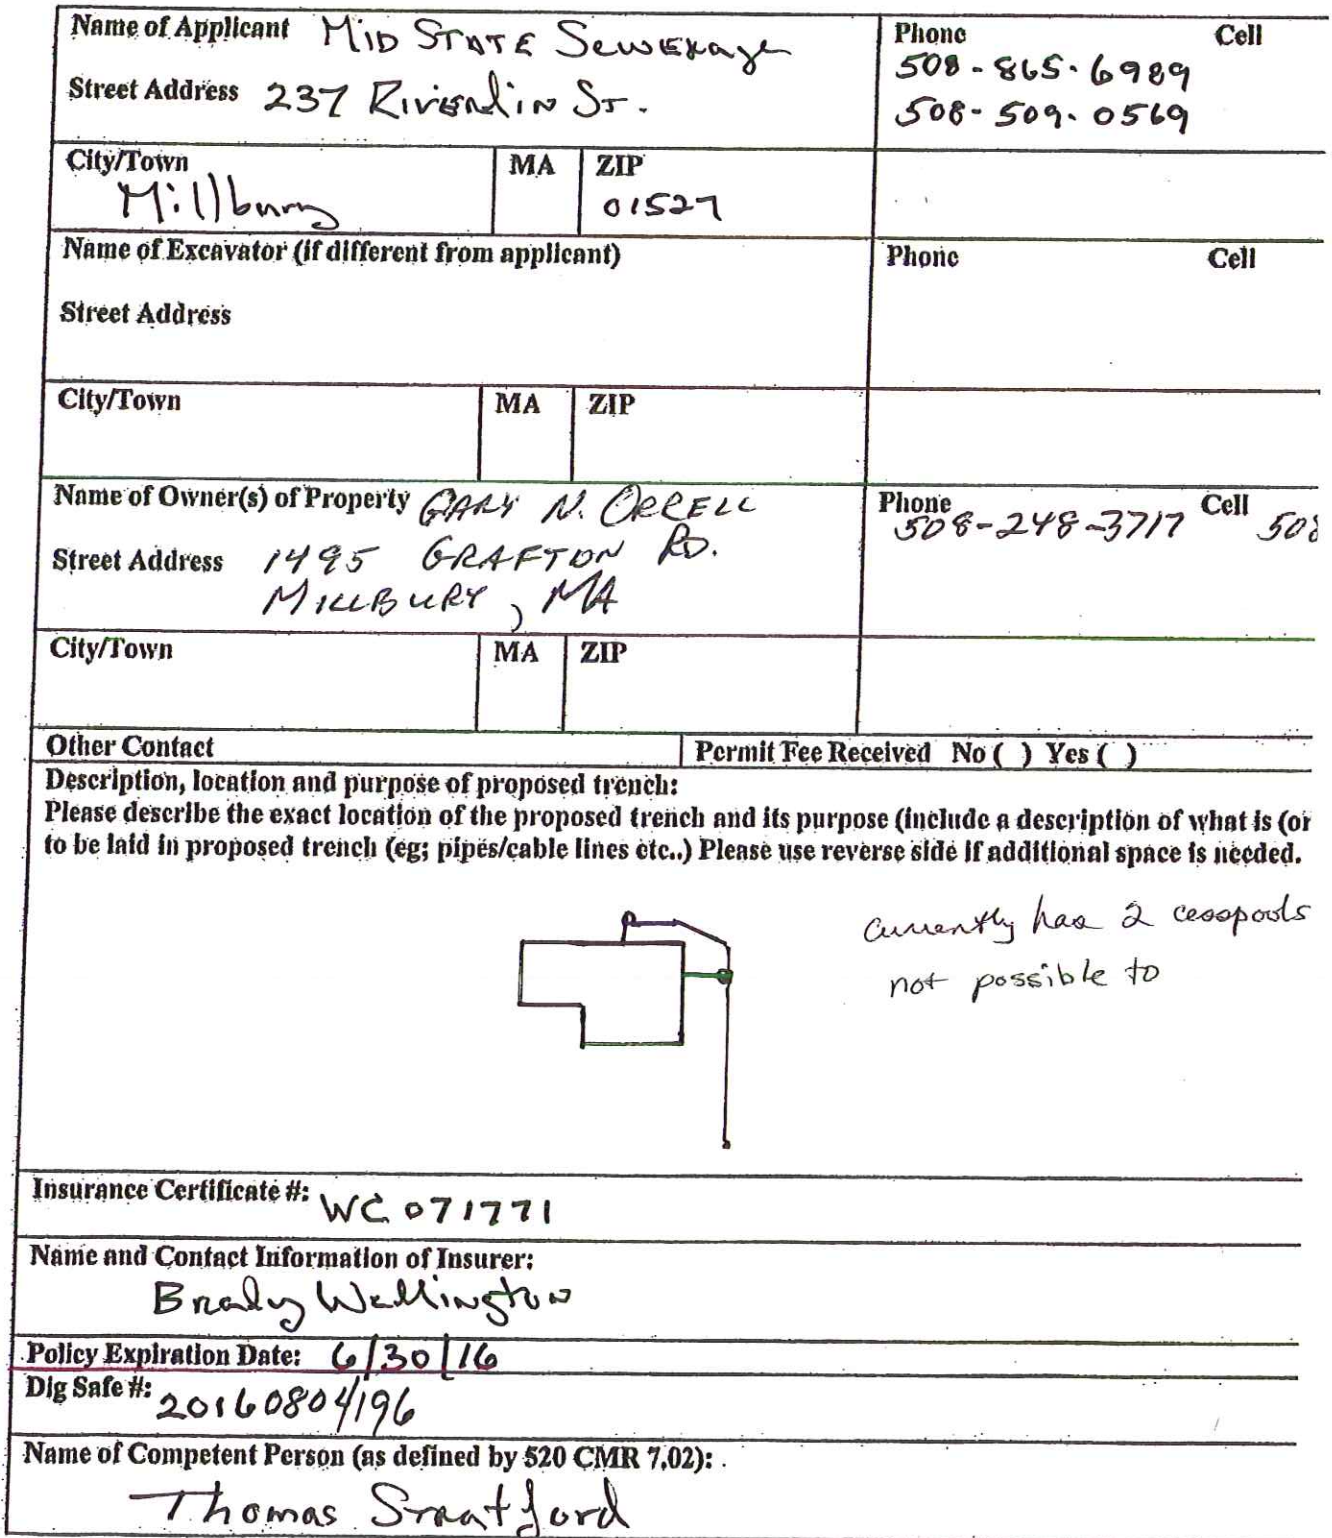 Name of Applicant MID STATE Sewerage
Phone Cell
508-865-6989
Street Address 237 Riverlin St.
508-509-0569
City/Town MA ZIP
Millbury 01527
Name of Excavator (if different from applicant) Phone Cell
Street Address
City/Town MA ZIP
Name of Owner(s) of Property GARY N. ORRELL Phone 508-248-3717 Cell 508
Street Address 1495 GRAFTON RD.
MILLBURY, MA
City/Town MA ZIP
Other Contact Permit Fee Received No ( ) Yes ( )
Description, location and purpose of proposed trench:
Please describe the exact location of the proposed trench and its purpose (include a description of what is (or
to be laid in proposed trench (eg; pipes/cable lines etc..) Please use reverse side if additional space is needed.
Currently has 2 cesspools
not possible to
Insurance Certificate #: WC 071771
Name and Contact Information of Insurer:
Brady Wellington
Policy Expiration Date: 6/30/16
Dig Safe #: 20160804196
Name of Competent Person (as defined by 520 CMR 7.02):
Thomas Stratford